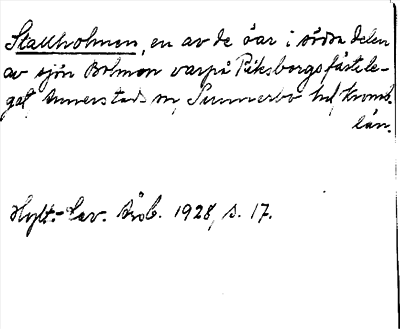 Stallholmen, en av de öar i södra delen
av sjön Bolmen varpå Piksborgs fäste le-
gat, Annerstads sn, Sunnerbo hd, Kronob.
län.
Hylt.-Cav. Ärób. 1928, s. 17.